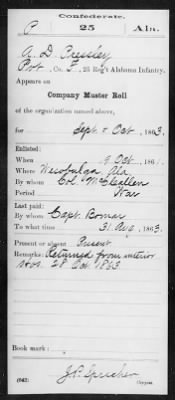 Confederate.
C 25 Ala.
A. D. Cressley
Pvt, Co. F, 25 Reg't Alabama Infantry.
Appears on
Company Muster Roll
of the organization named above,
for Sept & Oct, 1863.
Enlisted:
When 9 Oct, 186
Where Ala
By whom Col.
Period War
Last paid:
By whom Capt. Bomar
To what time 31 Aug, 1863.
Present or absent Present
Remarks: Returned from interior
Hos. 28 Oct 1863
Book mark:
(642)
Copyist.